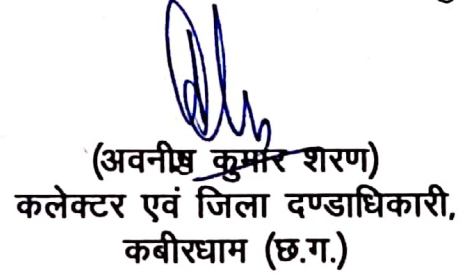 (अवनीश कुमार शरण)
कलेक्टर एवं जिला दण्डाधिकारी,
कबीरधाम (छ.ग.)